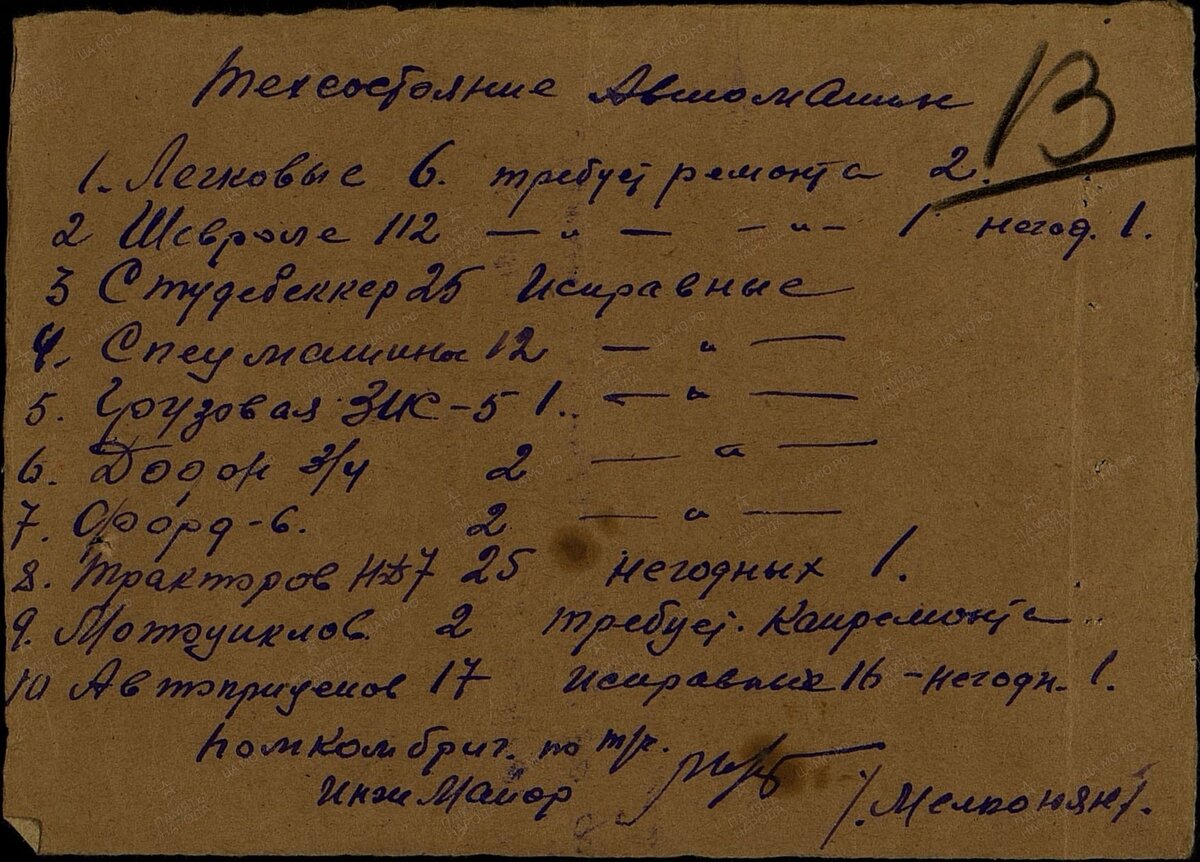 Техсостояние Автомашин
13
1. Легковые 6. требует ремонта 2.
2 Шевроле 112 — " — — " — 1 негод. 1.
3 Студебеккер 25 Исправные
4. Спецмашина 12 — " —
5. Грузовая ЗИС-5 1. — " —
6. Додж 3/4 2 — " —
7. Форд-6. 2 — " —
8. Тракторов НД7 25 негодных 1.
9. Мотоциклов 2 требует. Капремонта
10 Автоприцепов 17 исправных 16 - негодн. 1.
Помкомбриг. по т/ч.
Инж Майор /Мелконян/.